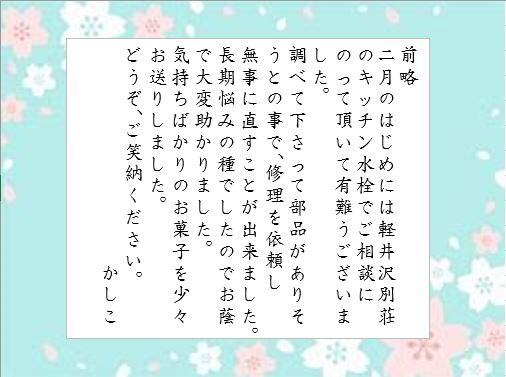 前略
二月のはじめには軽井沢別荘
のキッチン水栓でご相談に
のって頂いて有難うございま
した。
調べて下さって部品がありそ
うとの事で、修理を依頼し
無事に直すことが出来ました。
長期悩みの種でしたのでお蔭
で大変助かりました。
気持ちばかりのお菓子を少々
お送りしました。
どうぞ、ご笑納ください。
かしこ